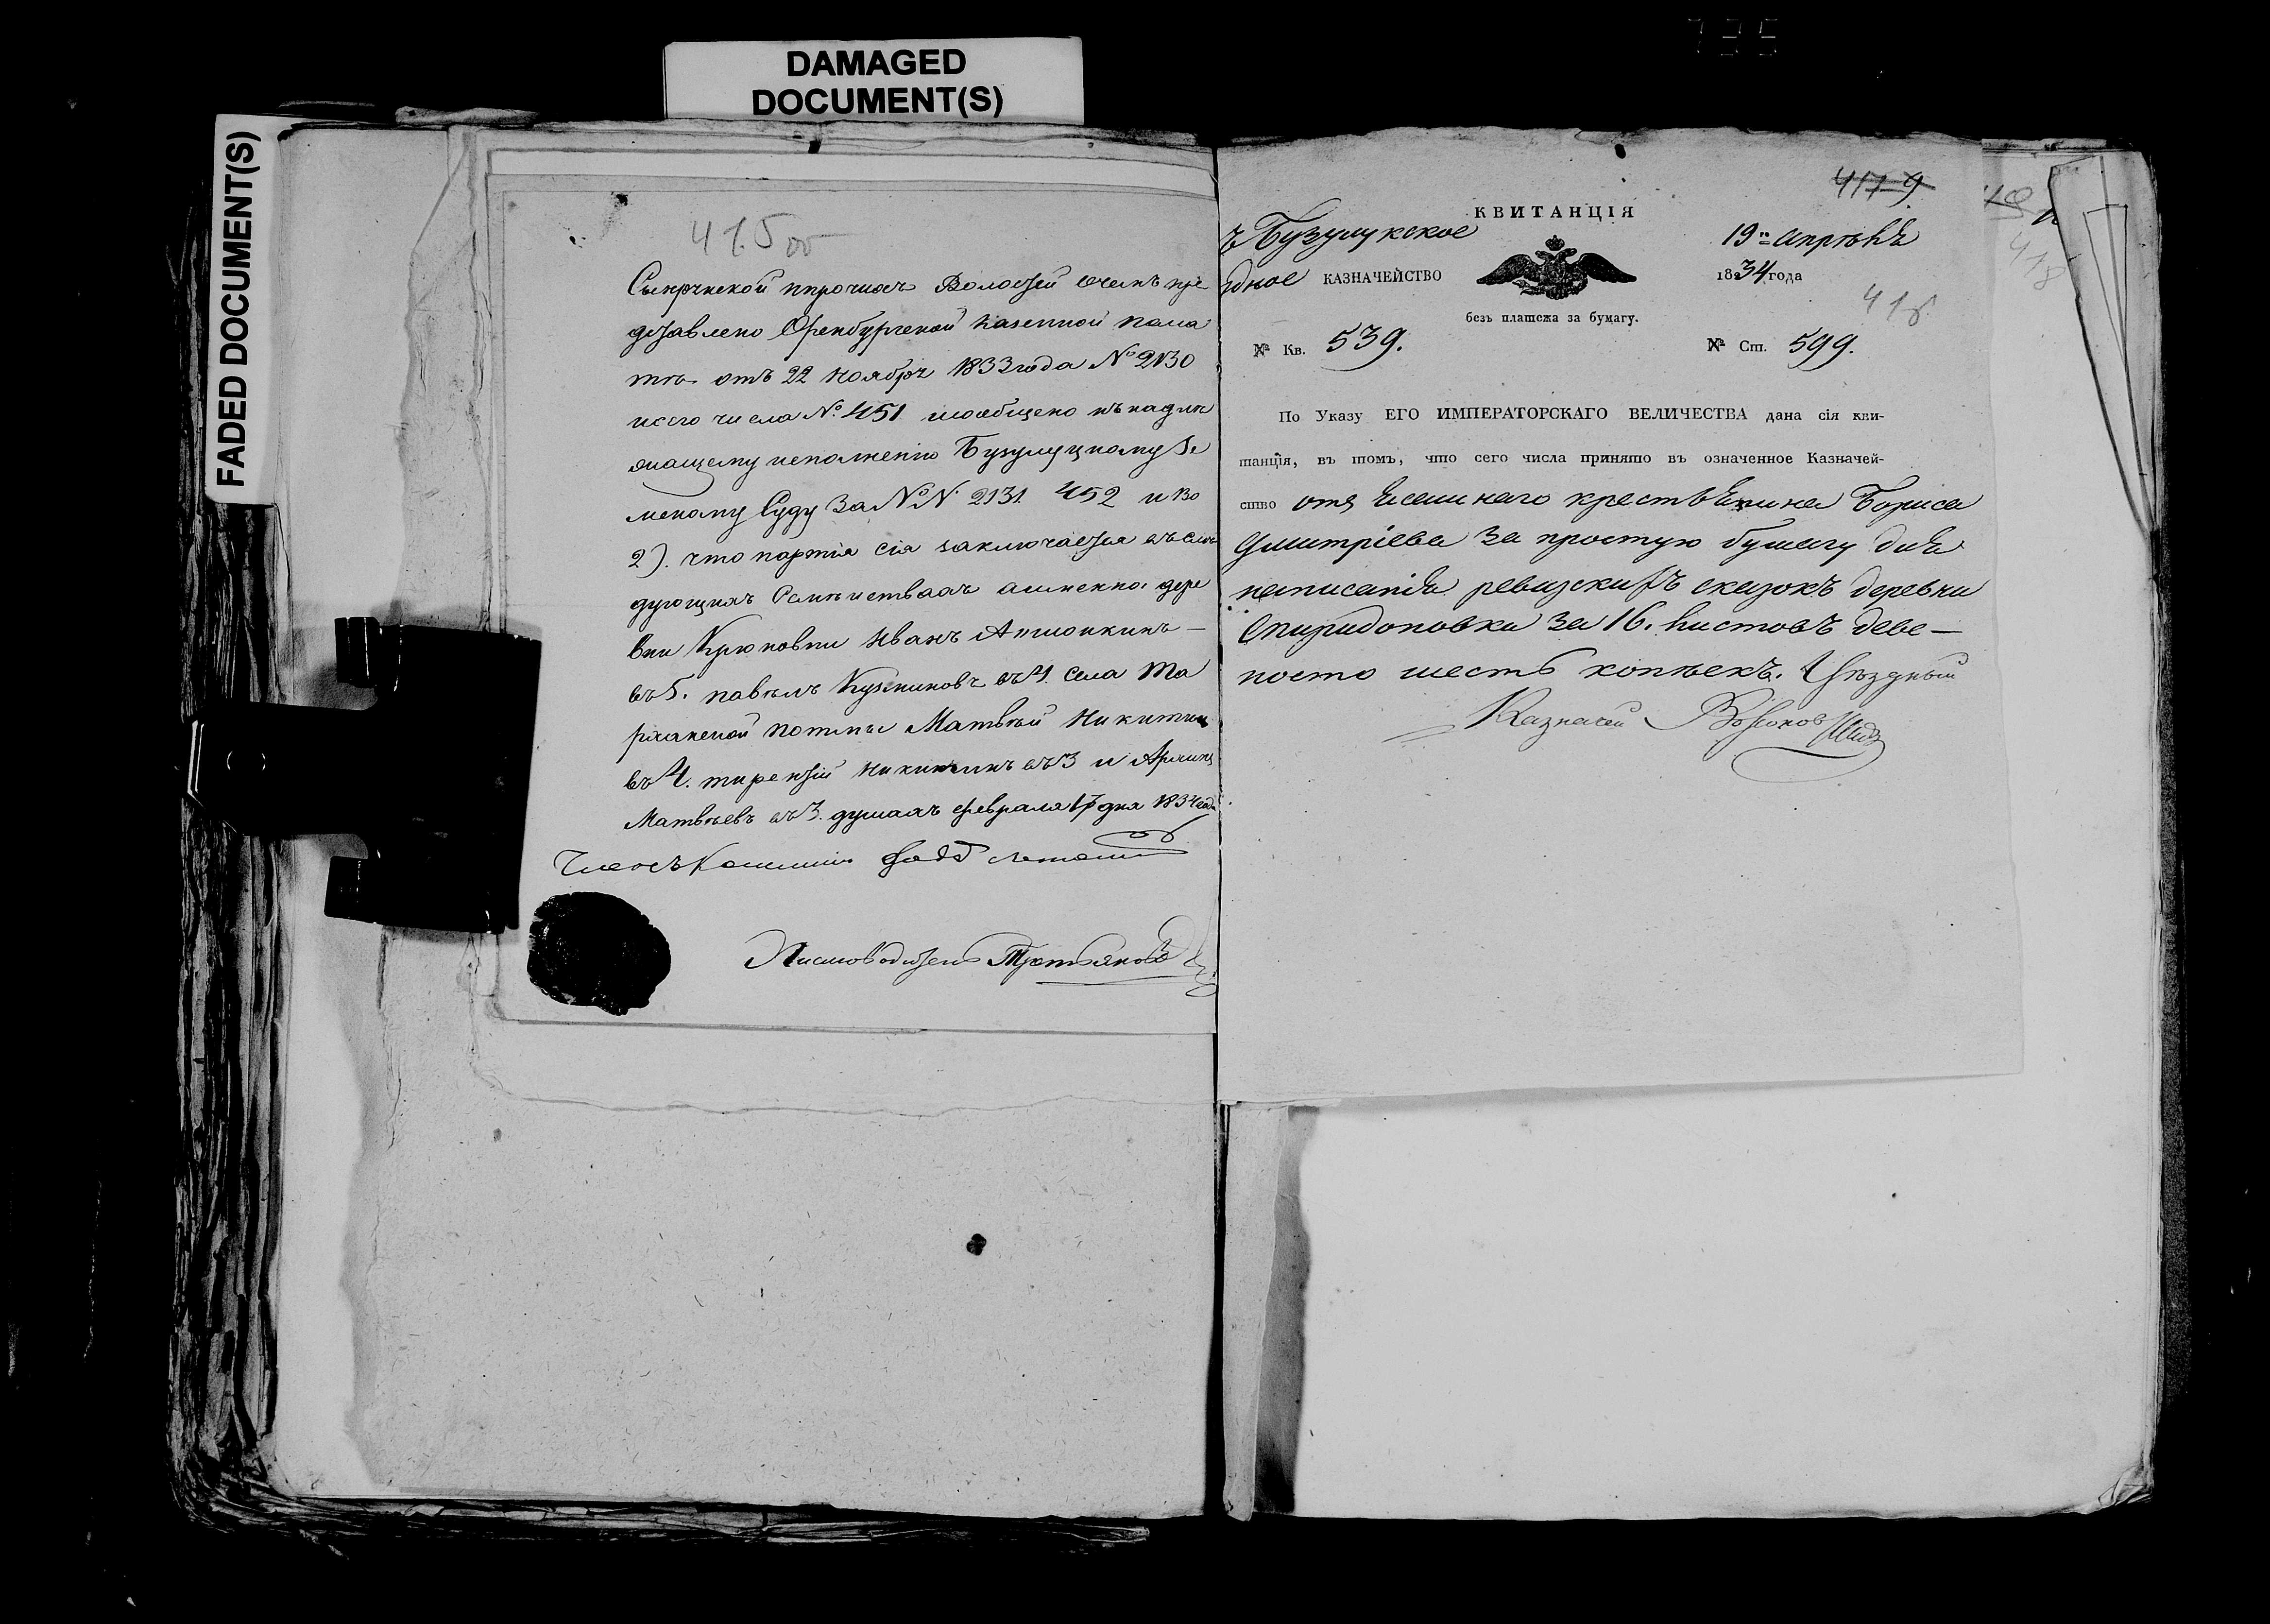 DAMAGED
DOCUMENT(S)
FADED DOCUMENT(S)
415 об
прочихъ Волостей очемъ пре
дставлено Оренбургской казенной пала
тѣ отъ 22 ноября 1833 года № 2130
и сего числа № 451 и сообщено къ надле
жащему исполненію Бузулуцкому Зе
мскому Суду за №№ 2131 452 и во
2). что партія сія заключается въ слѣ
дующихъ Семѣйствахъ а именно: дере
вни Крюковки Иванъ Атюшкинъ —
въ 5. павелъ Кузминовъ въ 4. села
Матвѣй Никитин
въ 4. Никитинъ въ 3 и
Матвѣевъ въ 3. душахъ февраля 17 дня 1834 года
Членъ Комиссіи
Письмоводитель Третьяковъ
417 9
КВИТАНЦІЯ
ъ Бузулукское
19го апрѣля
здное КАЗНАЧЕЙСТВО
1834 года
416
418
безъ платежа за бумагу.
№ Кв. 539.
№ Ст. 599.
По Указу ЕГО ИМПЕРАТОРСКАГО ВЕЛИЧЕСТВА дана сія кви-
танція, въ томъ, что сего числа принято въ означенное Казначей-
ство отъ ясашнаго крестьянина Бориса
Дмитріева за простую бумагу для
написанія ревизскихъ сказокъ деревни
Спиридоновки за 16. листовъ деве —
носто шесть копѣекъ. Уѣздный
Казначей